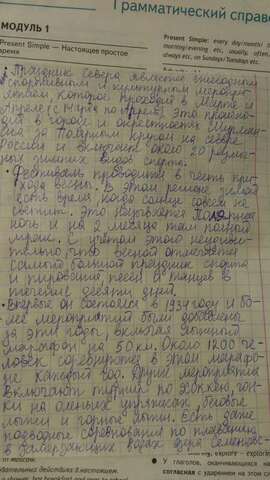 Грамматический справо
МОДУЛЬ 1
Present Simple — Настоящее простое
время
Present Simple: every day/month/
morning/evening etc., usually, often,
always etc., on Sundays/Tuesdays etc.
• Праздник севера является ежегодным
спортивным и культурным мероприя-
тием, которое проходит в Марте и
Апреле (с Марта по Апрель). Это происхо-
дит в городе и окрестностях Мурман-
ска за Полярным кругом на севере
России и включает около 20 различ-
ных зимних видов спорта.
• Фестиваль проводится в честь при-
хода весны. В этом регионе зимой
есть время, когда солнце совсем не
светит. Это называется Полярная
ночь и на 2 месяца там полный
мрак. С учётом этого неудиви-
тельно, что весной отмечается
самый большой праздник спорта
и пирования, песен и танцев в
течение десяти дней.
• Впервые он состоялся в 1934 году и бо-
лее мероприятий были добавлены
за эти годы, включая лыжный
марафон на 50 км. Около 1200 че-
ловек соревнуются в этом марафо-
не каждый год. Другие мероприятия
включают турнир по хоккею, гон-
ки на оленьих упряжках, беговые
лыжи и горные лыжи. Есть даже
подводные соревнования по плаванию
в замерзающих водах озера Семёновс-
ing, explore – exploring
• У глаголов, оканчивающихся на
согласная с ударением на